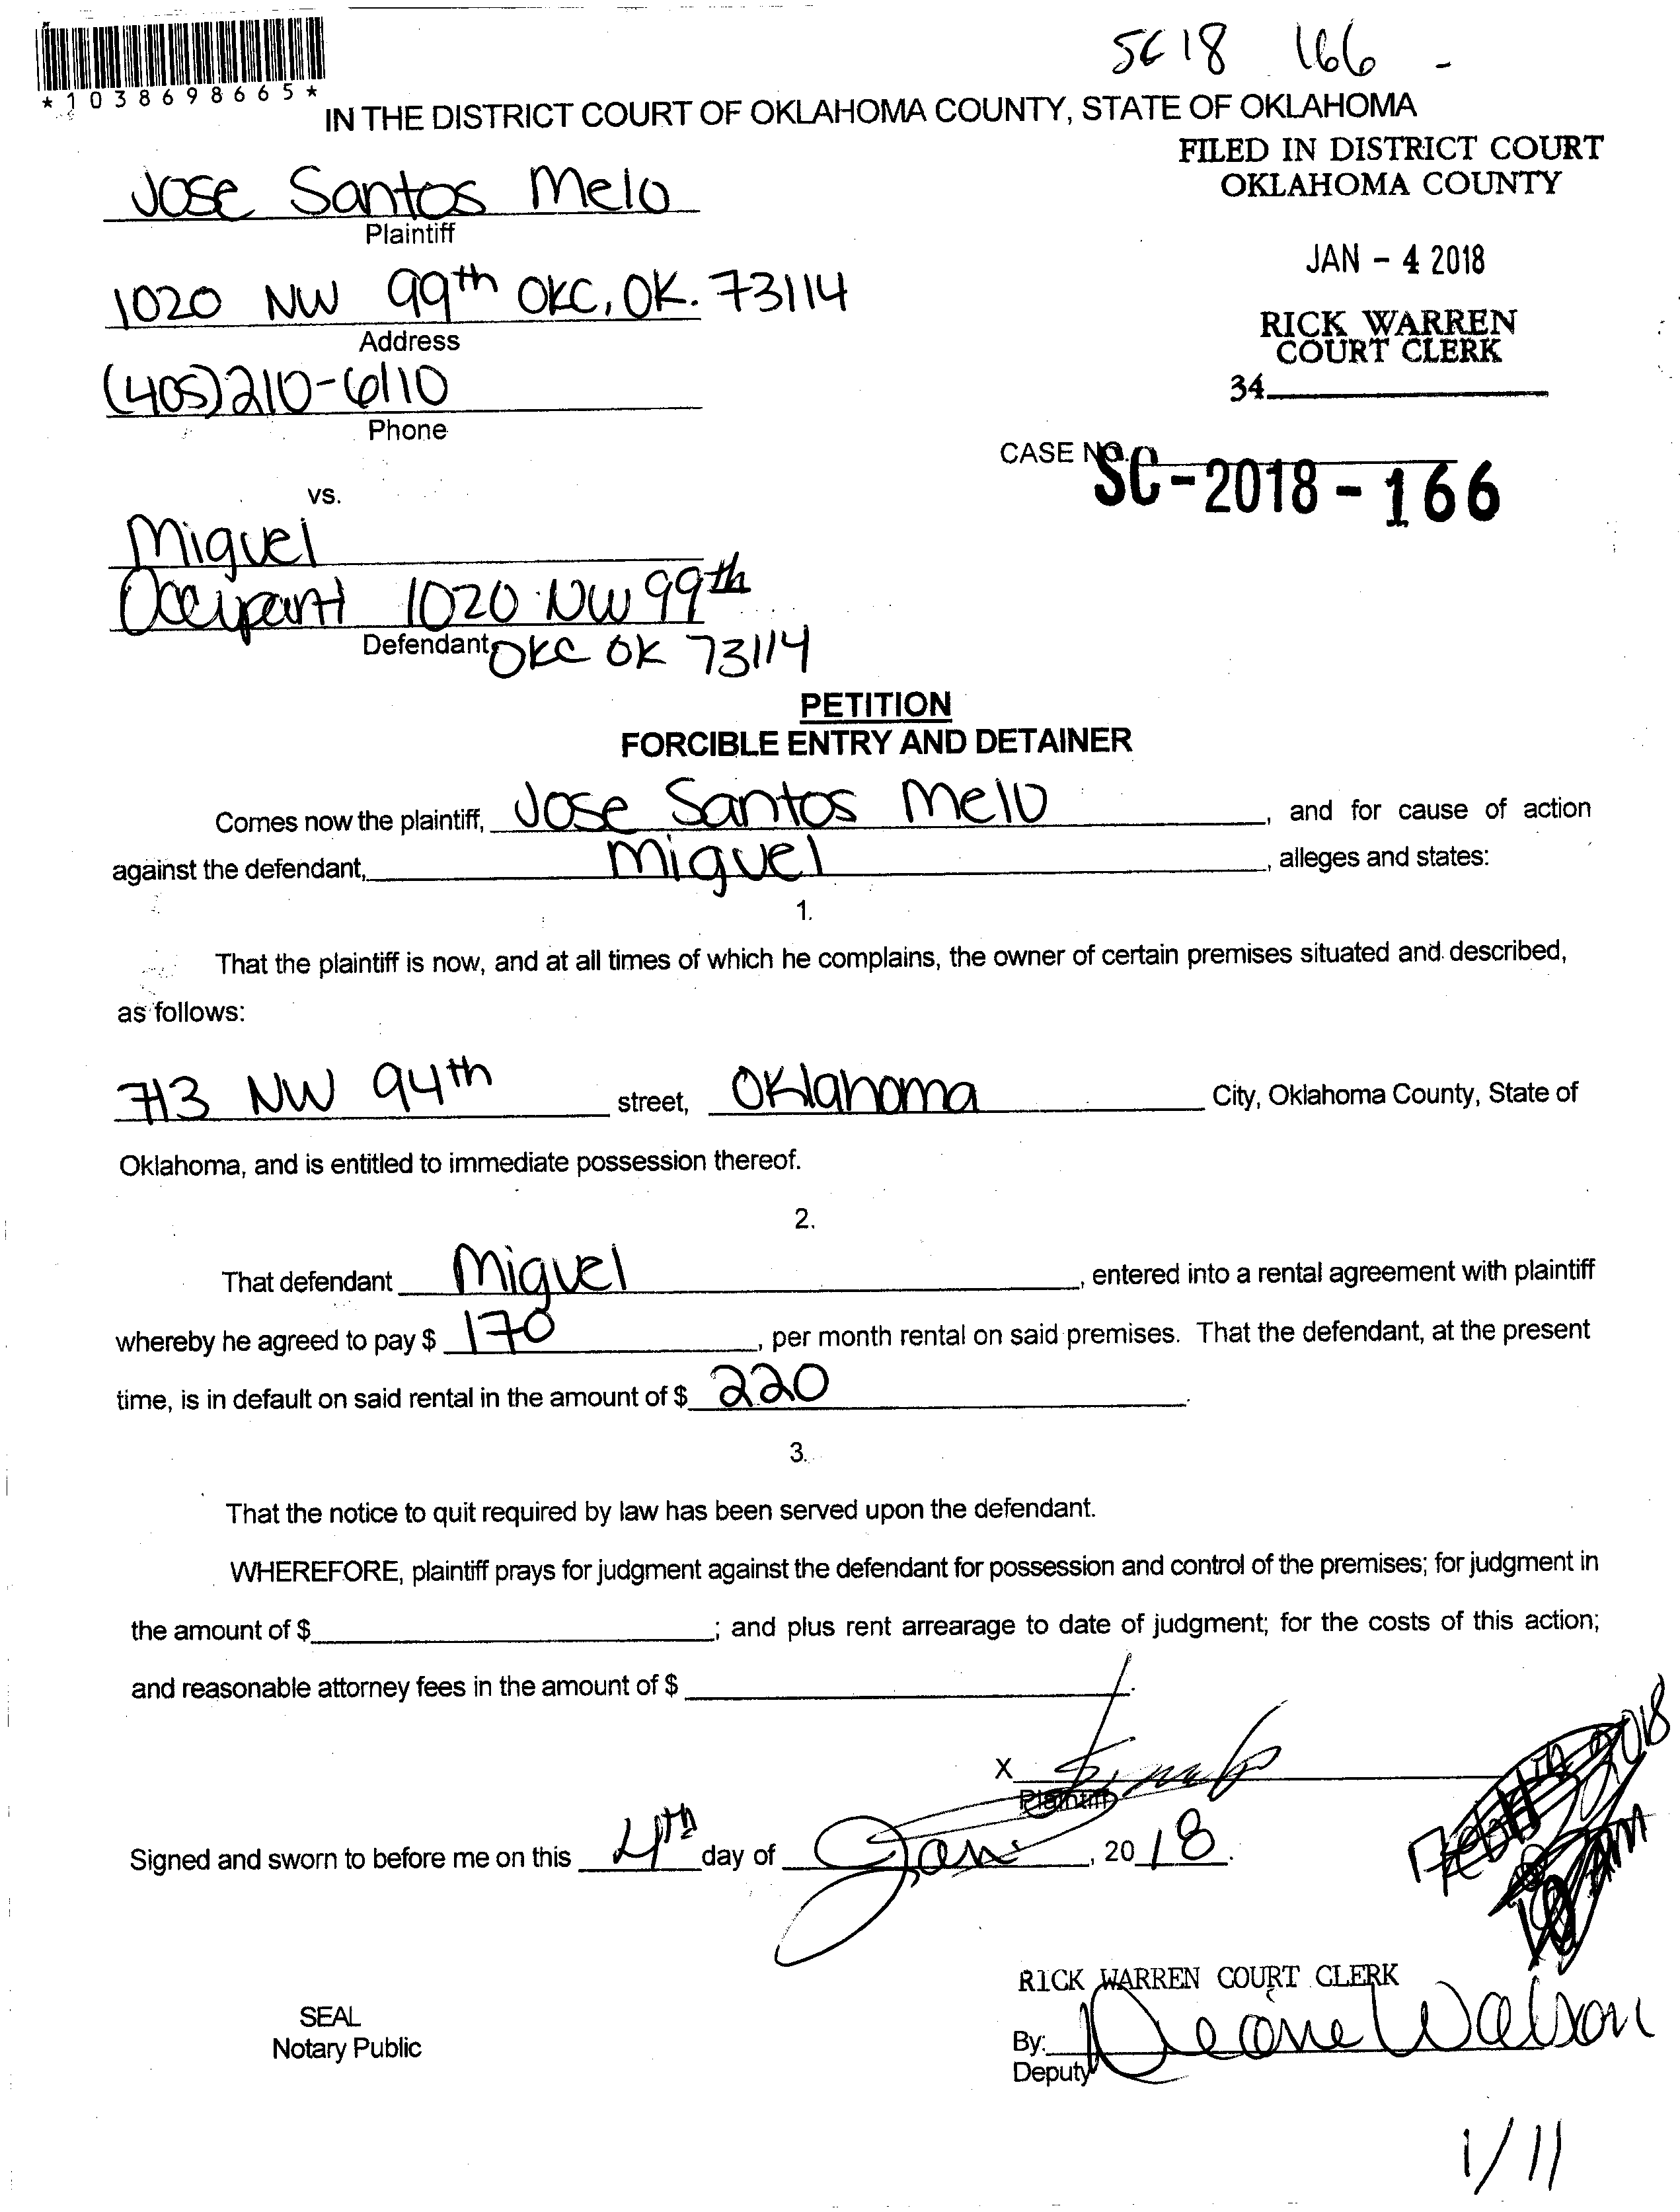 SC 18 166 -
*1038698665*
IN THE DISTRICT COURT OF OKLAHOMA COUNTY, STATE OF OKLAHOMA
FILED IN DISTRICT COURT
OKLAHOMA COUNTY
JAN - 4 2018
RICK WARREN
COURT CLERK
34
Jose Santos Melo
Plaintiff
1020 NW 99th OKC, OK. 73114
Address
(405)210-6110
Phone
CASE NO. SC-2018-166
vs.
Miguel
Occupant 1020 NW 99th
Defendant OKC OK 73114
PETITION
FORCIBLE ENTRY AND DETAINER
Comes now the plaintiff, Jose Santos Melo, and for cause of action
against the defendant, Miguel, alleges and states:
1.
That the plaintiff is now, and at all times of which he complains, the owner of certain premises situated and described,
as follows:
713 NW 94th street, Oklahoma City, Oklahoma County, State of
Oklahoma, and is entitled to immediate possession thereof.
2.
That defendant Miguel, entered into a rental agreement with plaintiff
whereby he agreed to pay $ 170, per month rental on said premises. That the defendant, at the present
time, is in default on said rental in the amount of $ 220.
3.
That the notice to quit required by law has been served upon the defendant.
WHEREFORE, plaintiff prays for judgment against the defendant for possession and control of the premises; for judgment in
the amount of $; and plus rent arrearage to date of judgment; for the costs of this action;
and reasonable attorney fees in the amount of $.
X
Plaintiff
Signed and sworn to before me on this 4th day of Jan, 2018.
RICK WARREN COURT CLERK
SEAL
Notary Public
By:
Deputy
1/11